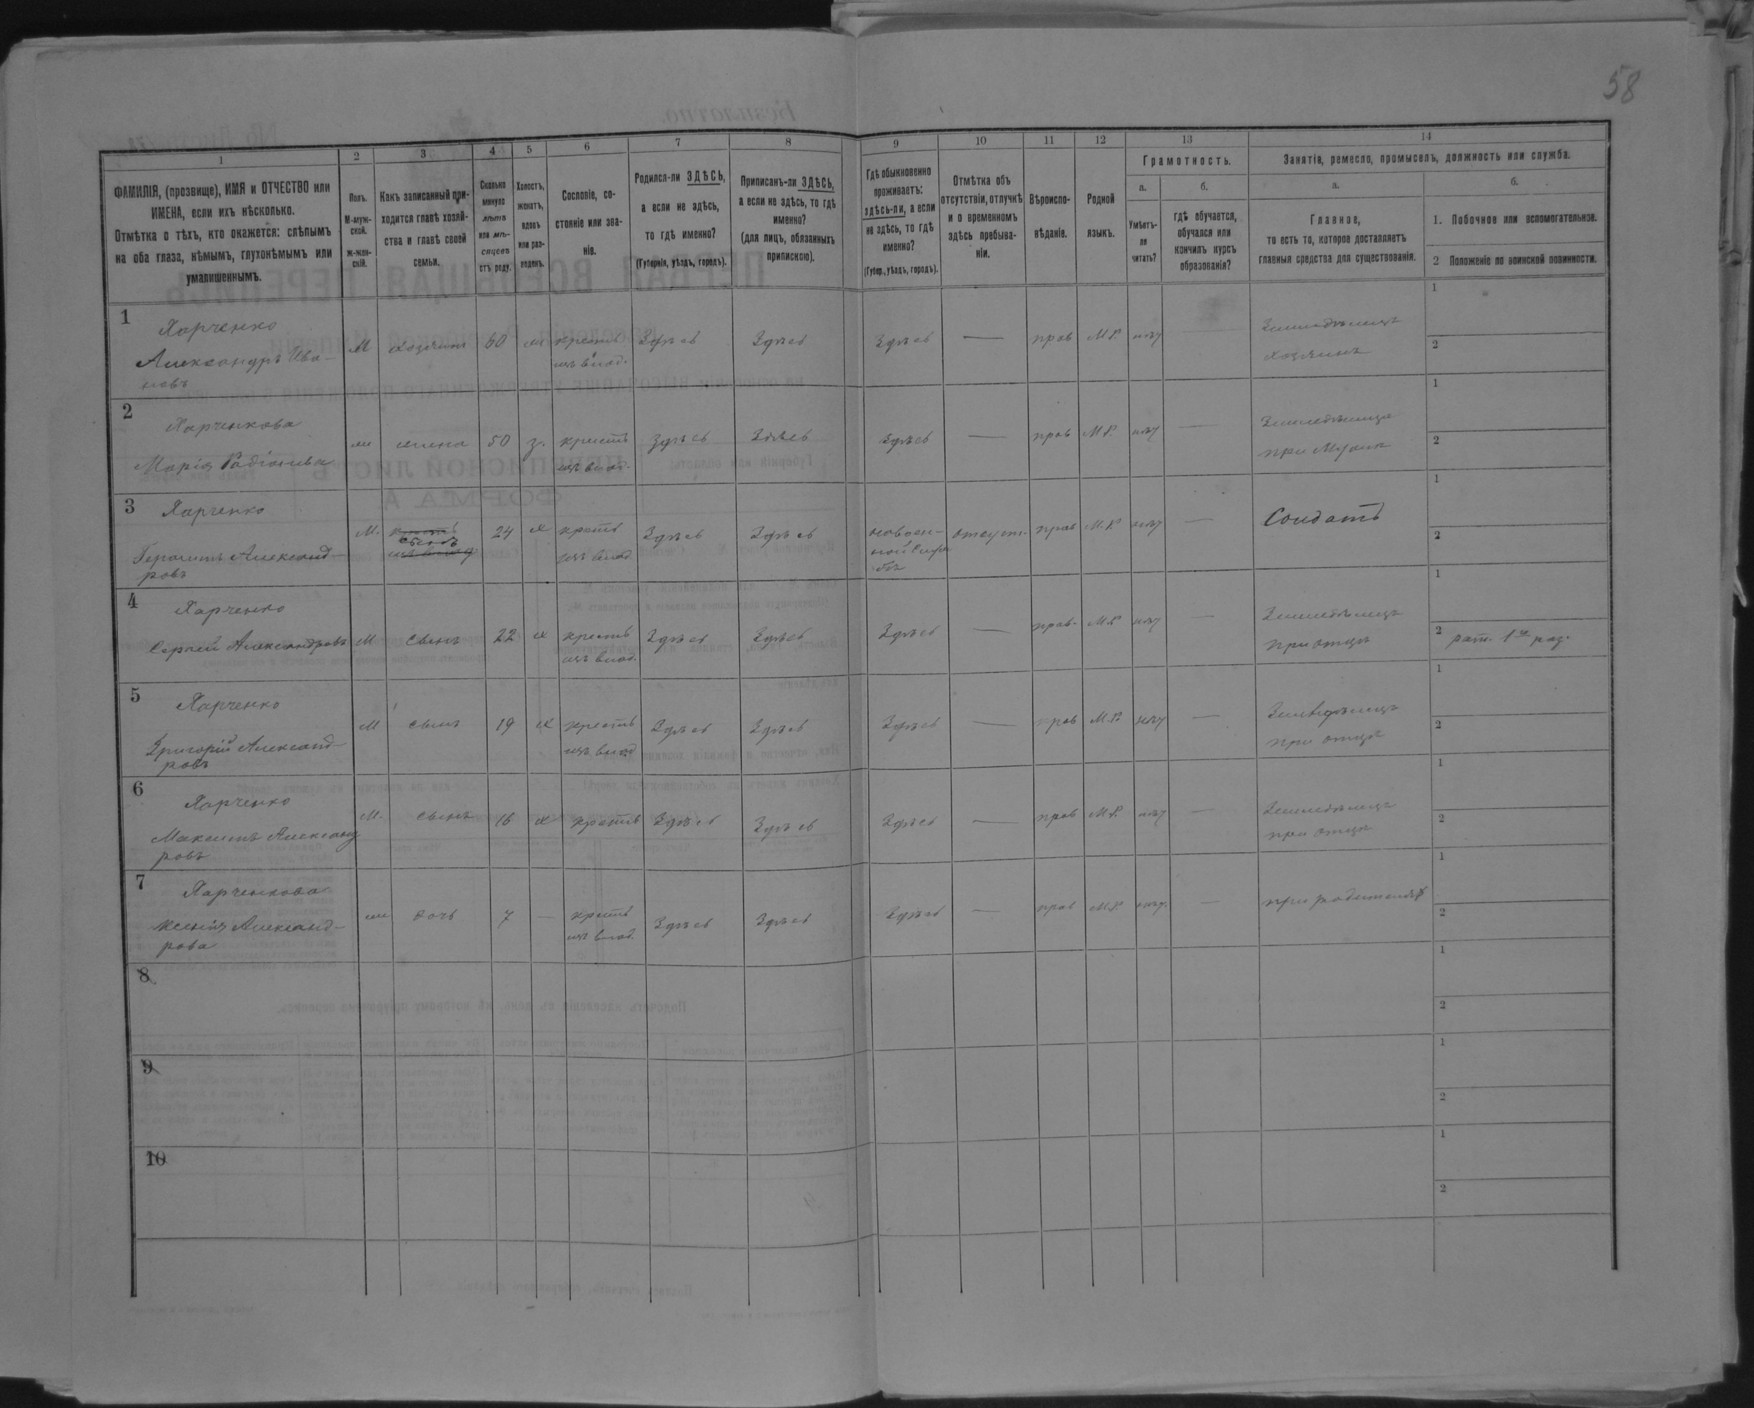 58
1 2 3 4 5 6 7 8 9 10 11 12 13 14
ФАМИЛІЯ, (прозвище), ИМЯ и ОТЧЕСТВО или ИМЕНА, если ихъ нѣсколько.
Отмѣтка о тѣхъ, кто окажется: слѣпымъ на оба глаза, нѣмымъ, глухонѣмымъ или умалишеннымъ.
Полъ. М-муж-ской. Ж-жен-скій.
Какъ записанный при-ходится главѣ хозяй-ства и главѣ своей семьи.
Сколько минуло лѣтъ или мѣ-сяцевъ отъ роду.
Холостъ, женатъ, вдовъ или раз-веденъ.
Сословіе, со-стояніе или зва-ніе.
Родился-ли ЗДѢСЬ, а если не здѣсь, то гдѣ именно? (Губернія, уѣздъ, городъ).
Приписанъ-ли ЗДѢСЬ, а если не здѣсь, то гдѣ именно? (для лицъ, обязанныхъ припискою).
Гдѣ обыкновенно проживаетъ: здѣсь-ли, а если не здѣсь, то гдѣ именно? (Губер., уѣздъ, городъ).
Отмѣтка объ отсутствіи, отлучкѣ и о временномъ здѣсь пребыва-ніи.
Вѣроиспо-вѣданіе.
Родной языкъ.
Грамотность.
а. Умѣетъ-ли читать?
б. гдѣ обучается, обучался или кончилъ курсъ образованія?
Занятія, ремесло, промыселъ, должность или служба.
а. Главное, то есть то, которое доставляетъ главныя средства для существованія.
б. 1. Побочное или вспомогательное.
2 Положеніе по воинской повинности.
1 Харченко Александръ Ива-новъ М хозяинъ 60 ж крестъ изъ влад. Здѣсь Здѣсь Здѣсь — прав М.Р. нѣт — Земледѣлецъ хозяинъ 1 2
2 Харченкова Марія жена 50 з. крестъ изъ влад. Здѣсь Здѣсь Здѣсь — прав М.Р. нѣт — при Мужѣ 1 2
3 Харченко Александ-ровъ М. 24 х крестъ изъ влад Здѣсь Здѣсь отсут. прав М.Р. нѣт — Солдатъ 1 2
4 Харченко Сергѣй Александровъ М сынъ 22 х крестъ изъ влад. Здѣсь Здѣсь Здѣсь — прав. М.Р. нѣт — Земледѣлецъ при отцѣ 1 2 рат. 1го раз.
5 Харченко Григорій Александ-ровъ М сынъ 19 х крестъ изъ влад Здѣсь Здѣсь Здѣсь — прав М.Р. нѣт — Земледѣлецъ при отцѣ 1 2
6 Харченко Максимъ Александ ровъ М. сынъ 16 х крестъ Здѣсь Здѣсь Здѣсь — прав М.Р. нѣт — Земледѣлецъ при отцѣ 1 2
7 Харченкова Ксенія Александ-рова дочь 7 — крестъ изъ влад. Здѣсь Здѣсь Здѣсь — прав М.Р. нѣт. — при родителяхъ 1 2
8 1 2
9 1 2
10 1 2